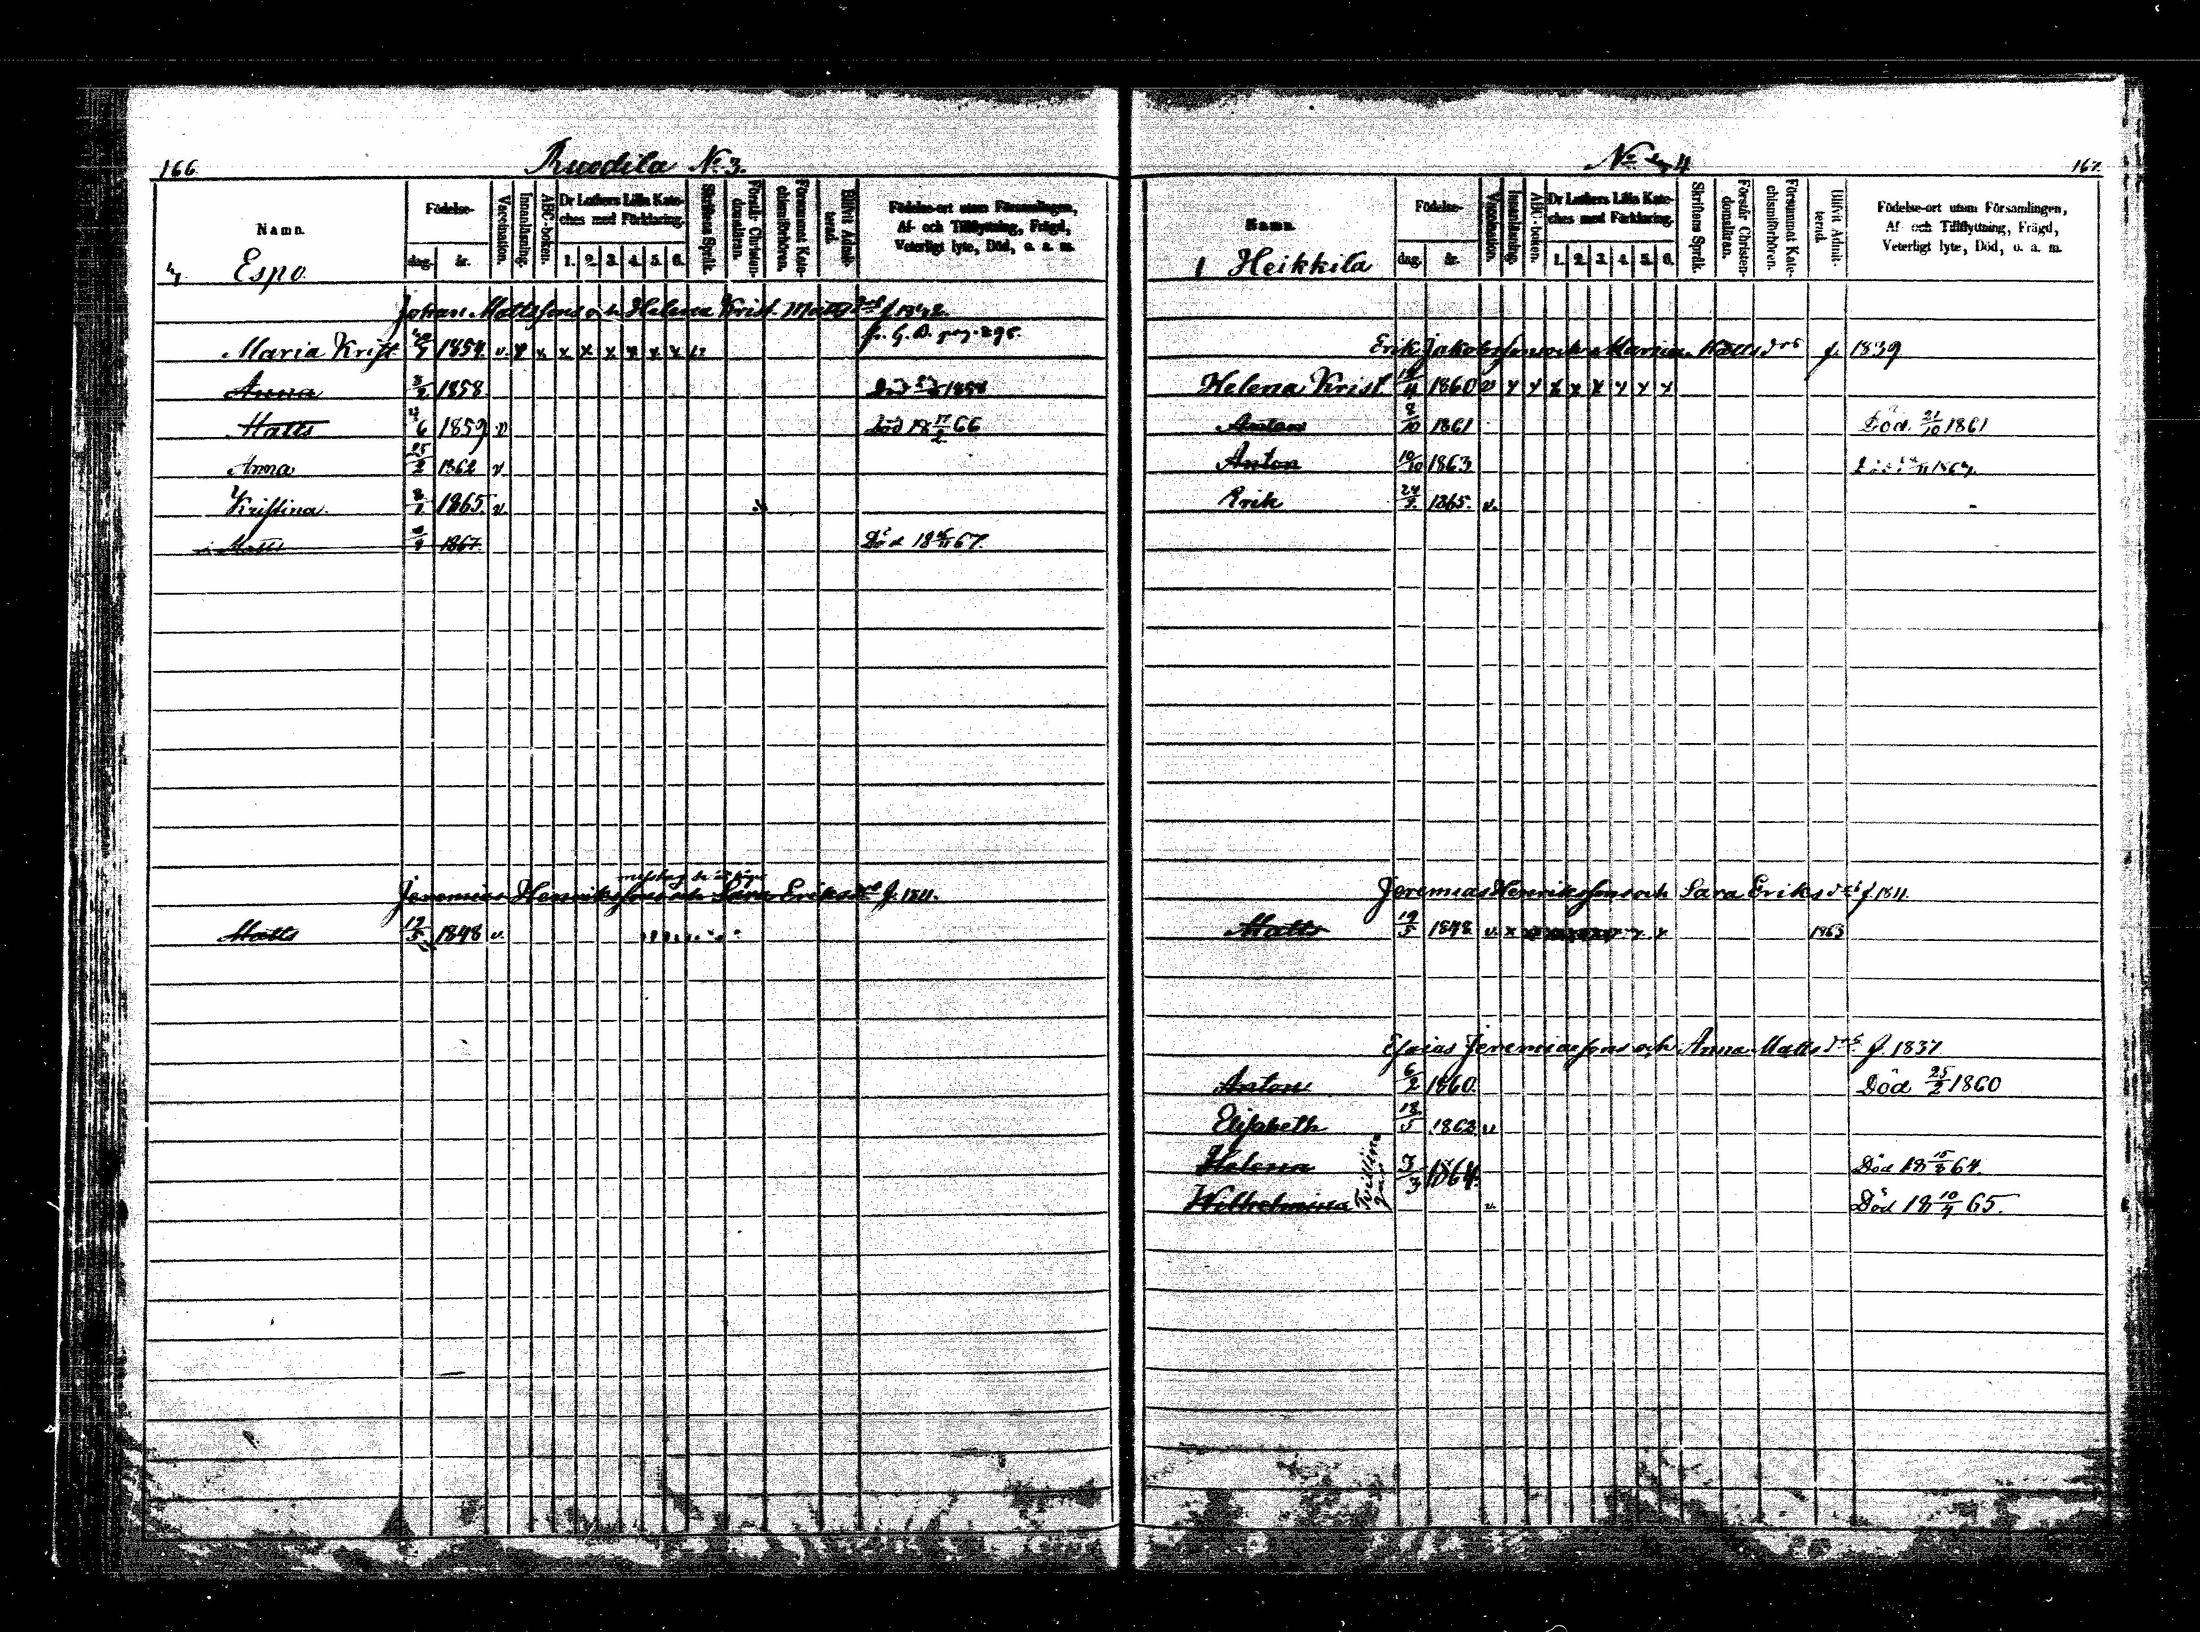 166.
Ruodila No 3.
Namn.
Födelse-
dag.
år.
Vaccination.
Innanläsning.
ABC-boken.
Dr Luthers Lilla Kate-
ches med Förklaring.
1. 2. 3. 4. 5. 6.
Skriftens Språk.
Förstår Christen-
domsläran.
Försummat Kate-
chismiförhören.
Blifvit Admit-
terad.
Födelse-ort utom Församlingen,
Af- och Tillflyttning, Frägd,
Veterligt lyte, Död, o. a. m.
Espo.
Johan Mattssons och Helena Krist. Matts
Maria Krist 1857. v. x x x x x x x x
Anna 1858 Död 1858
Matts 6 1859 v Död 18 17/2 66
Anna 25/2 1862 v
Kristina 1865. v.
Matts 1867. Död 18 67.
Jeremias Henrikssons och Sara Eriksdrs f. 1811.
Matts 19/5 1848 v.
No 4
167.
Namn.
Födelse-
dag.
år.
Vaccination.
Innanläsning.
ABC-boken.
Dr Luthers Lilla Kate-
ches med Förklaring.
1. 2. 3. 4. 5. 6.
Skriftens Språk.
Förstår Christen-
domsläran.
Försummat Kate-
chismiförhören.
Blifvit Admit-
terad.
Födelse-ort utom Församlingen,
Af- och Tillflyttning, Frägd,
Veterligt lyte, Död, o. a. m.
1 Heikkila
Erik Jakobssons och Maria Mattsdrs f. 1839
Helena Krist. 1860 v x x x x x x x x
Anton 8/10 1861 Död 21/10 1861
Anton 10/10 1863
Erik 24/9 1865. v.
Jeremias Henrikssons och Sara Eriksdrs f. 1811.
Matts 19/5 1848 v. x x x 1863
Esaias Jeremiassons och Anna Mattsdrs f. 1837
Anton 6/2 1860. Död 25/2 1860
Elisabeth 1862 v
Helena 3/3 1864. Död 18 15/8 64.
Wilhelmina Tvillingar v. Död 18 10/4 65.